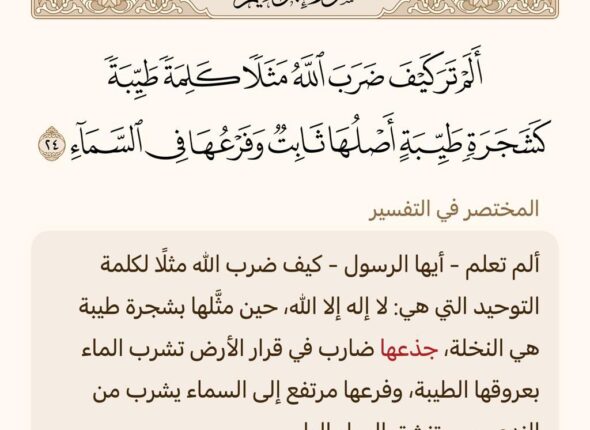 أَلَمْ تَرَ كَيْفَ ضَرَبَ ٱللَّهُ مَثَلًا كَلِمَةً طَيِّبَةً
كَشَجَرَةٍ طَيِّبَةٍ أَصْلُهَا ثَابِتٌ وَفَرْعُهَا فِي ٱلسَّمَآءِ ٢٤
المختصر في التفسير
ألم تعلم - أيها الرسول - كيف ضرب الله مثلًا لكلمة
التوحيد التي هي: لا إله إلا الله، حين مثَّلها بشجرة طيبة
هي النخلة، جذعها ضارب في قرار الأرض تشرب الماء
بعروقها الطيبة، وفرعها مرتفع إلى السماء يشرب من